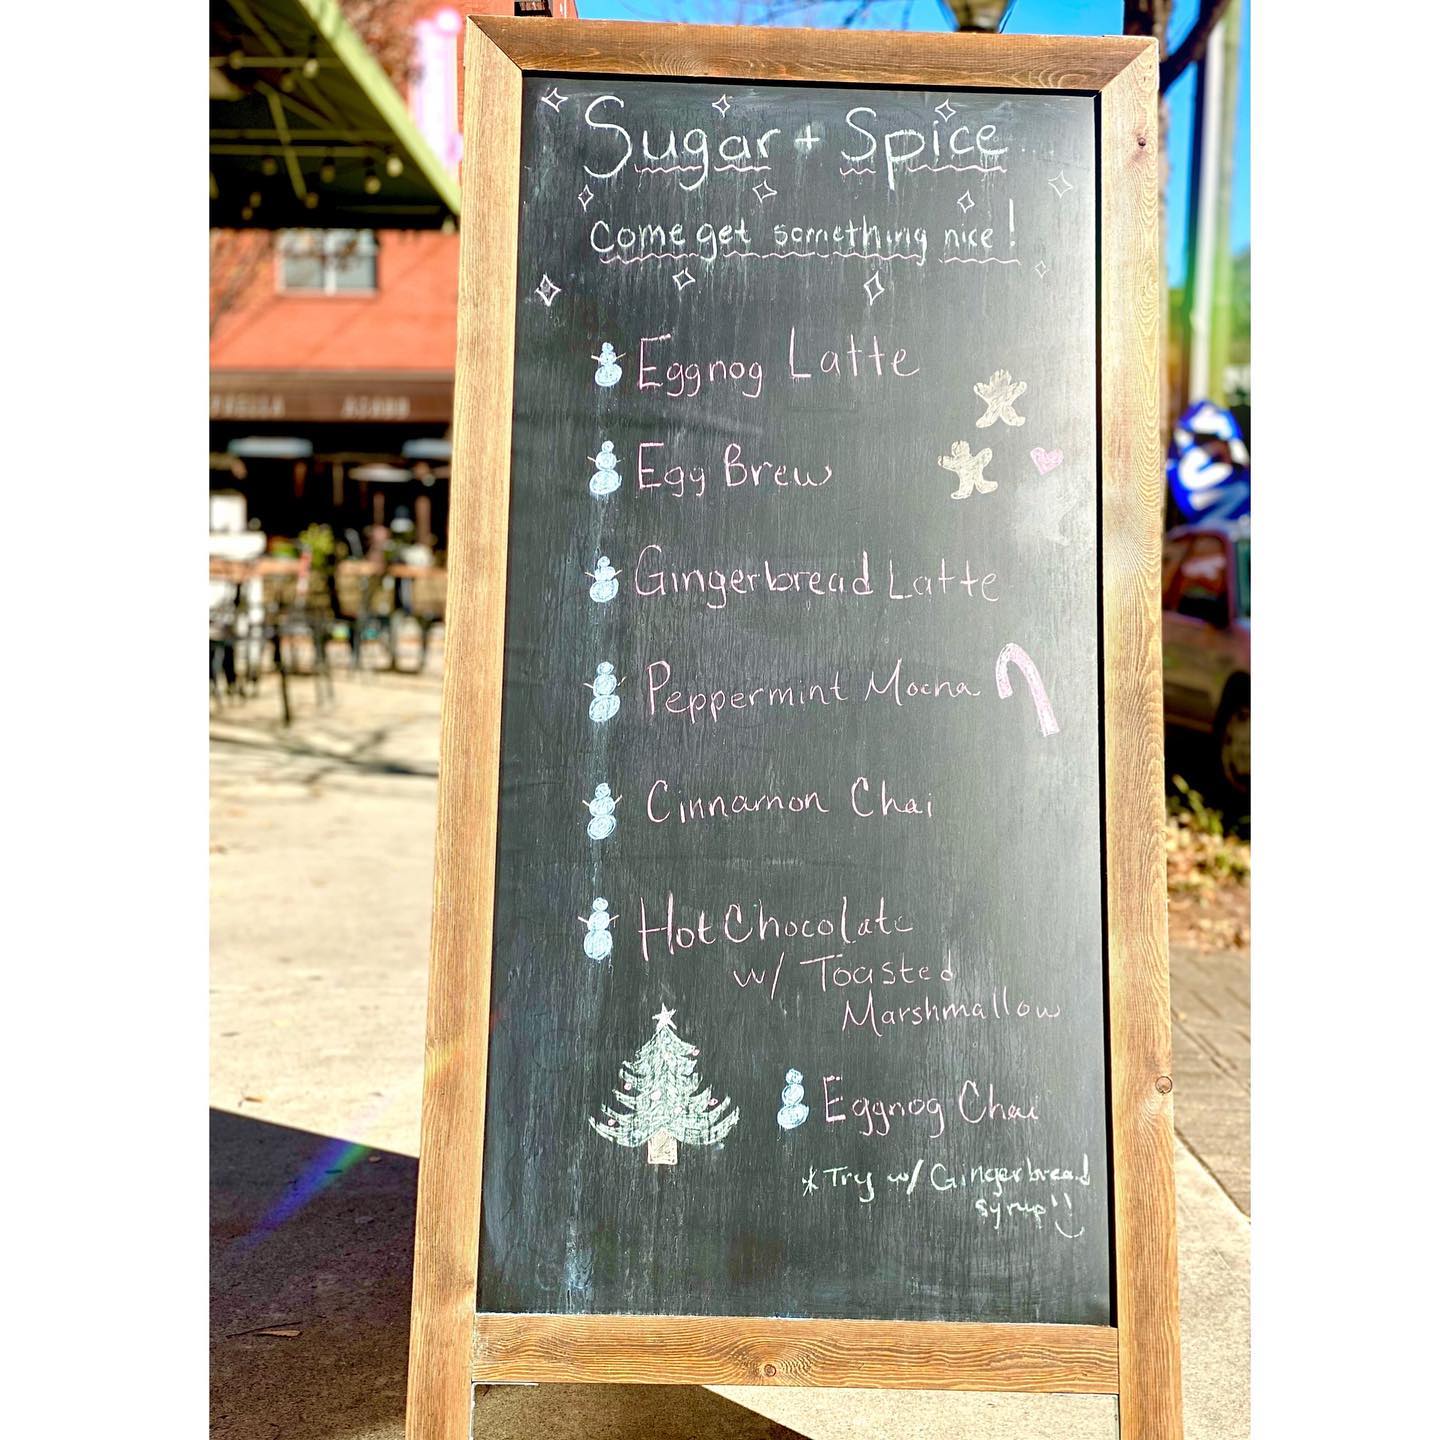 Sugar + Spice
Come get something nice!
Eggnog Latte
Egg Brew
Gingerbread Latte
Peppermint Mocha
Cinnamon Chai
Hot Chocolate
w/ Toasted
Marshmallow
Eggnog Chai
*Try w/ Gingerbread
syrup!!